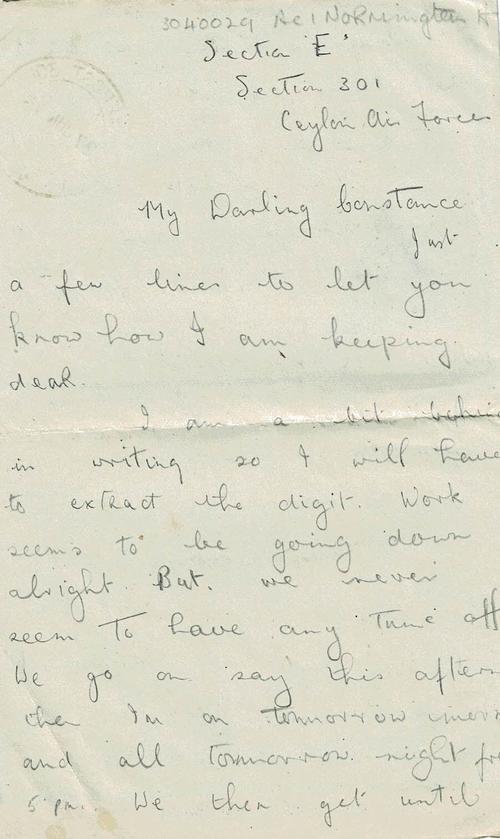 3040029 Ac1 Normington H
Section 'E'
Section 301
Ceylon Air Forces
My Darling Constance
Just
a few lines to let you
know how I am keeping
dear.
I am a bit behin
in writing so I will have
to extract the digit. Work
seems to be going down
alright. But. we never
seem to have any Time off
We go on say this aftern
then Im on tomorrow morn
and all tomorrow night fro
5 pm. We then get until